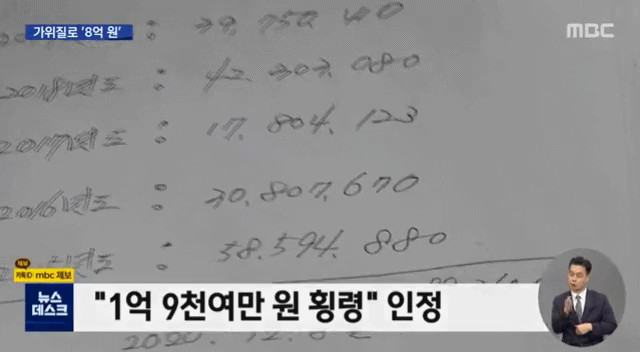 가위질로 '8억 원'
MBC
39,750
2018년도 : 42,303,080
2017년도 : 17,804,123
2016년도 : 30,807,670
: 58,594,880
제보
카톡ID mbc 제보
뉴스
데스크
"1억 9천여만 원 횡령" 인정
2020. 12.